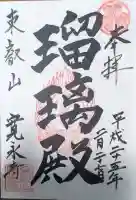 奉拝
平成二十五年
二月二十七日
瑠璃殿
東叡山
寛永寺